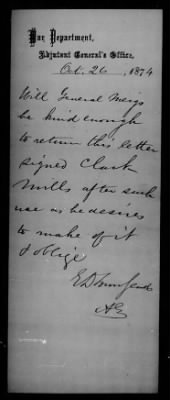 War Department,
Adjutant General's Office,
Oct. 26, 1874
Will General Meigs
be kind enough
to return this letter
signed Clark
Mills after such
use as he desires
to make of it
& oblige
E D Townsend
AG